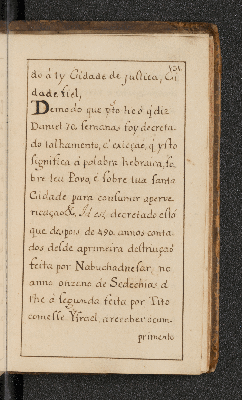 do á ty Cidade de justica, Ci
dade fiel,
Demodo que pto he ó q̃ diz
Daniel 70 semanas foy decreta
do talhamento, é exleçaõ, q̃ isto
significa á palabra hebraica, so
bre teu Povo, é sobre tua santa
Cidade para consumir
Id est, decretado está
que despois de 490 annos conta
dos desde aprimeira destruiçaõ
feita por Nabuchadnesar, no
anno onzeno de Sedechias
the á segunda feita por Tito
Ysrael, a receber ocum
primento